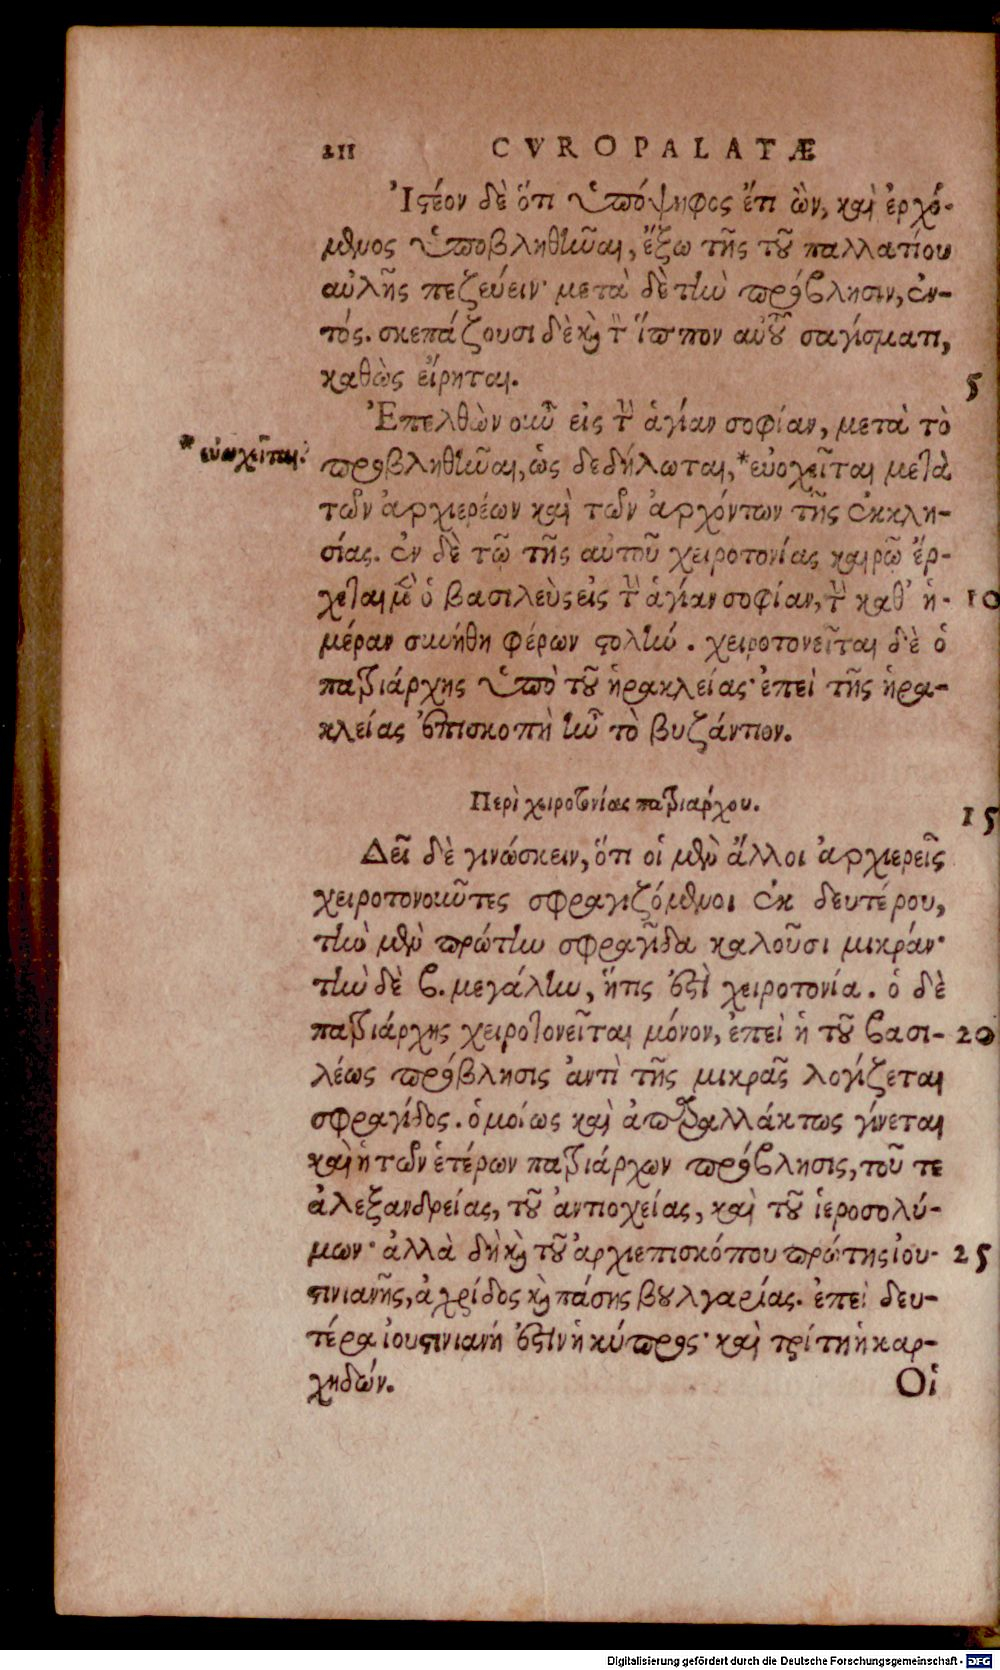 211 CVROPALATÆ
Ἰστέον δὲ ὅτι ὑπόψηφος ἔτι ὢν, καὶ ἐρχό-
μενος ὑποβληθῆναι, ἔξω τῆς τοῦ παλλατίου
αὐλῆς πεζεύειν· μετὰ δὲ τὴν πρόβλησιν, ἐν-
τός. σκεπάζουσι δὲ καὶ τὸν ἵππον αὐτοῦ σαγίσματι,
καθὼς εἴρηται.
5
Ἐπελθὼν οὖν εἰς τὴν ἁγίαν σοφίαν, μετὰ τὸ
* εὐωχεῖται.
προβληθῆναι, ὡς δεδήλωται, *εὐοχεῖται μετὰ
τῶν ἀρχιερέων καὶ τῶν ἀρχόντων τῆς ἐκκλη-
σίας. ἐν δὲ τῷ τῆς αὐτοῦ χειροτονίας καιρῷ ἔρ-
χεται μὲν ὁ βασιλεὺς εἰς τὴν ἁγίαν σοφίαν, τὴν καθ' ἡ- 10
μέραν συνήθη φέρων στολήν. χειροτονεῖται δὲ ὁ
πατριάρχης ὑπὸ τοῦ ἡρακλείας· ἐπεὶ τῆς ἡρα-
κλείας ἐπισκοπὴ ἦν τὸ βυζάντιον.
Περὶ χειροτονίας πατριάρχου.
15
Δεῖ δὲ γινώσκειν, ὅτι οἱ μὲν ἄλλοι ἀρχιερεῖς
χειροτονοῦντες σφραγιζόμενοι ἐκ δευτέρου,
τὴν μὲν πρώτην σφραγῖδα καλοῦσι μικράν·
τὴν δὲ β. μεγάλην, ἥτις ἐστὶ χειροτονία. ὁ δὲ
πατριάρχης χειροτονεῖται μόνον, ἐπεὶ ἡ τοῦ βασι- 20
λέως πρόβλησις ἀντὶ τῆς μικρᾶς λογίζεται
σφραγίδος. ὁμοίως καὶ ἀπαραλλάκτως γίνεται
καὶ ἡ τῶν ἑτέρων πατριάρχων πρόβλησις, τοῦ τε
ἀλεξανδρείας, τοῦ ἀντιοχείας, καὶ τοῦ ἱεροσολύ-
μων· ἀλλὰ δὴ καὶ τοῦ ἀρχιεπισκόπου πρώτης ἰου- 25
στινιανῆς, ἀχρίδος καὶ πάσης βουλγαρίας. ἐπεὶ δευ-
τέρα ἰουστινιανή ἐστιν ἡ κύπρος· καὶ τρίτη ἡ καρ-
χηδών. Οἱ
Digitalisierung gefördert durch die Deutsche Forschungsgemeinschaft - DFG